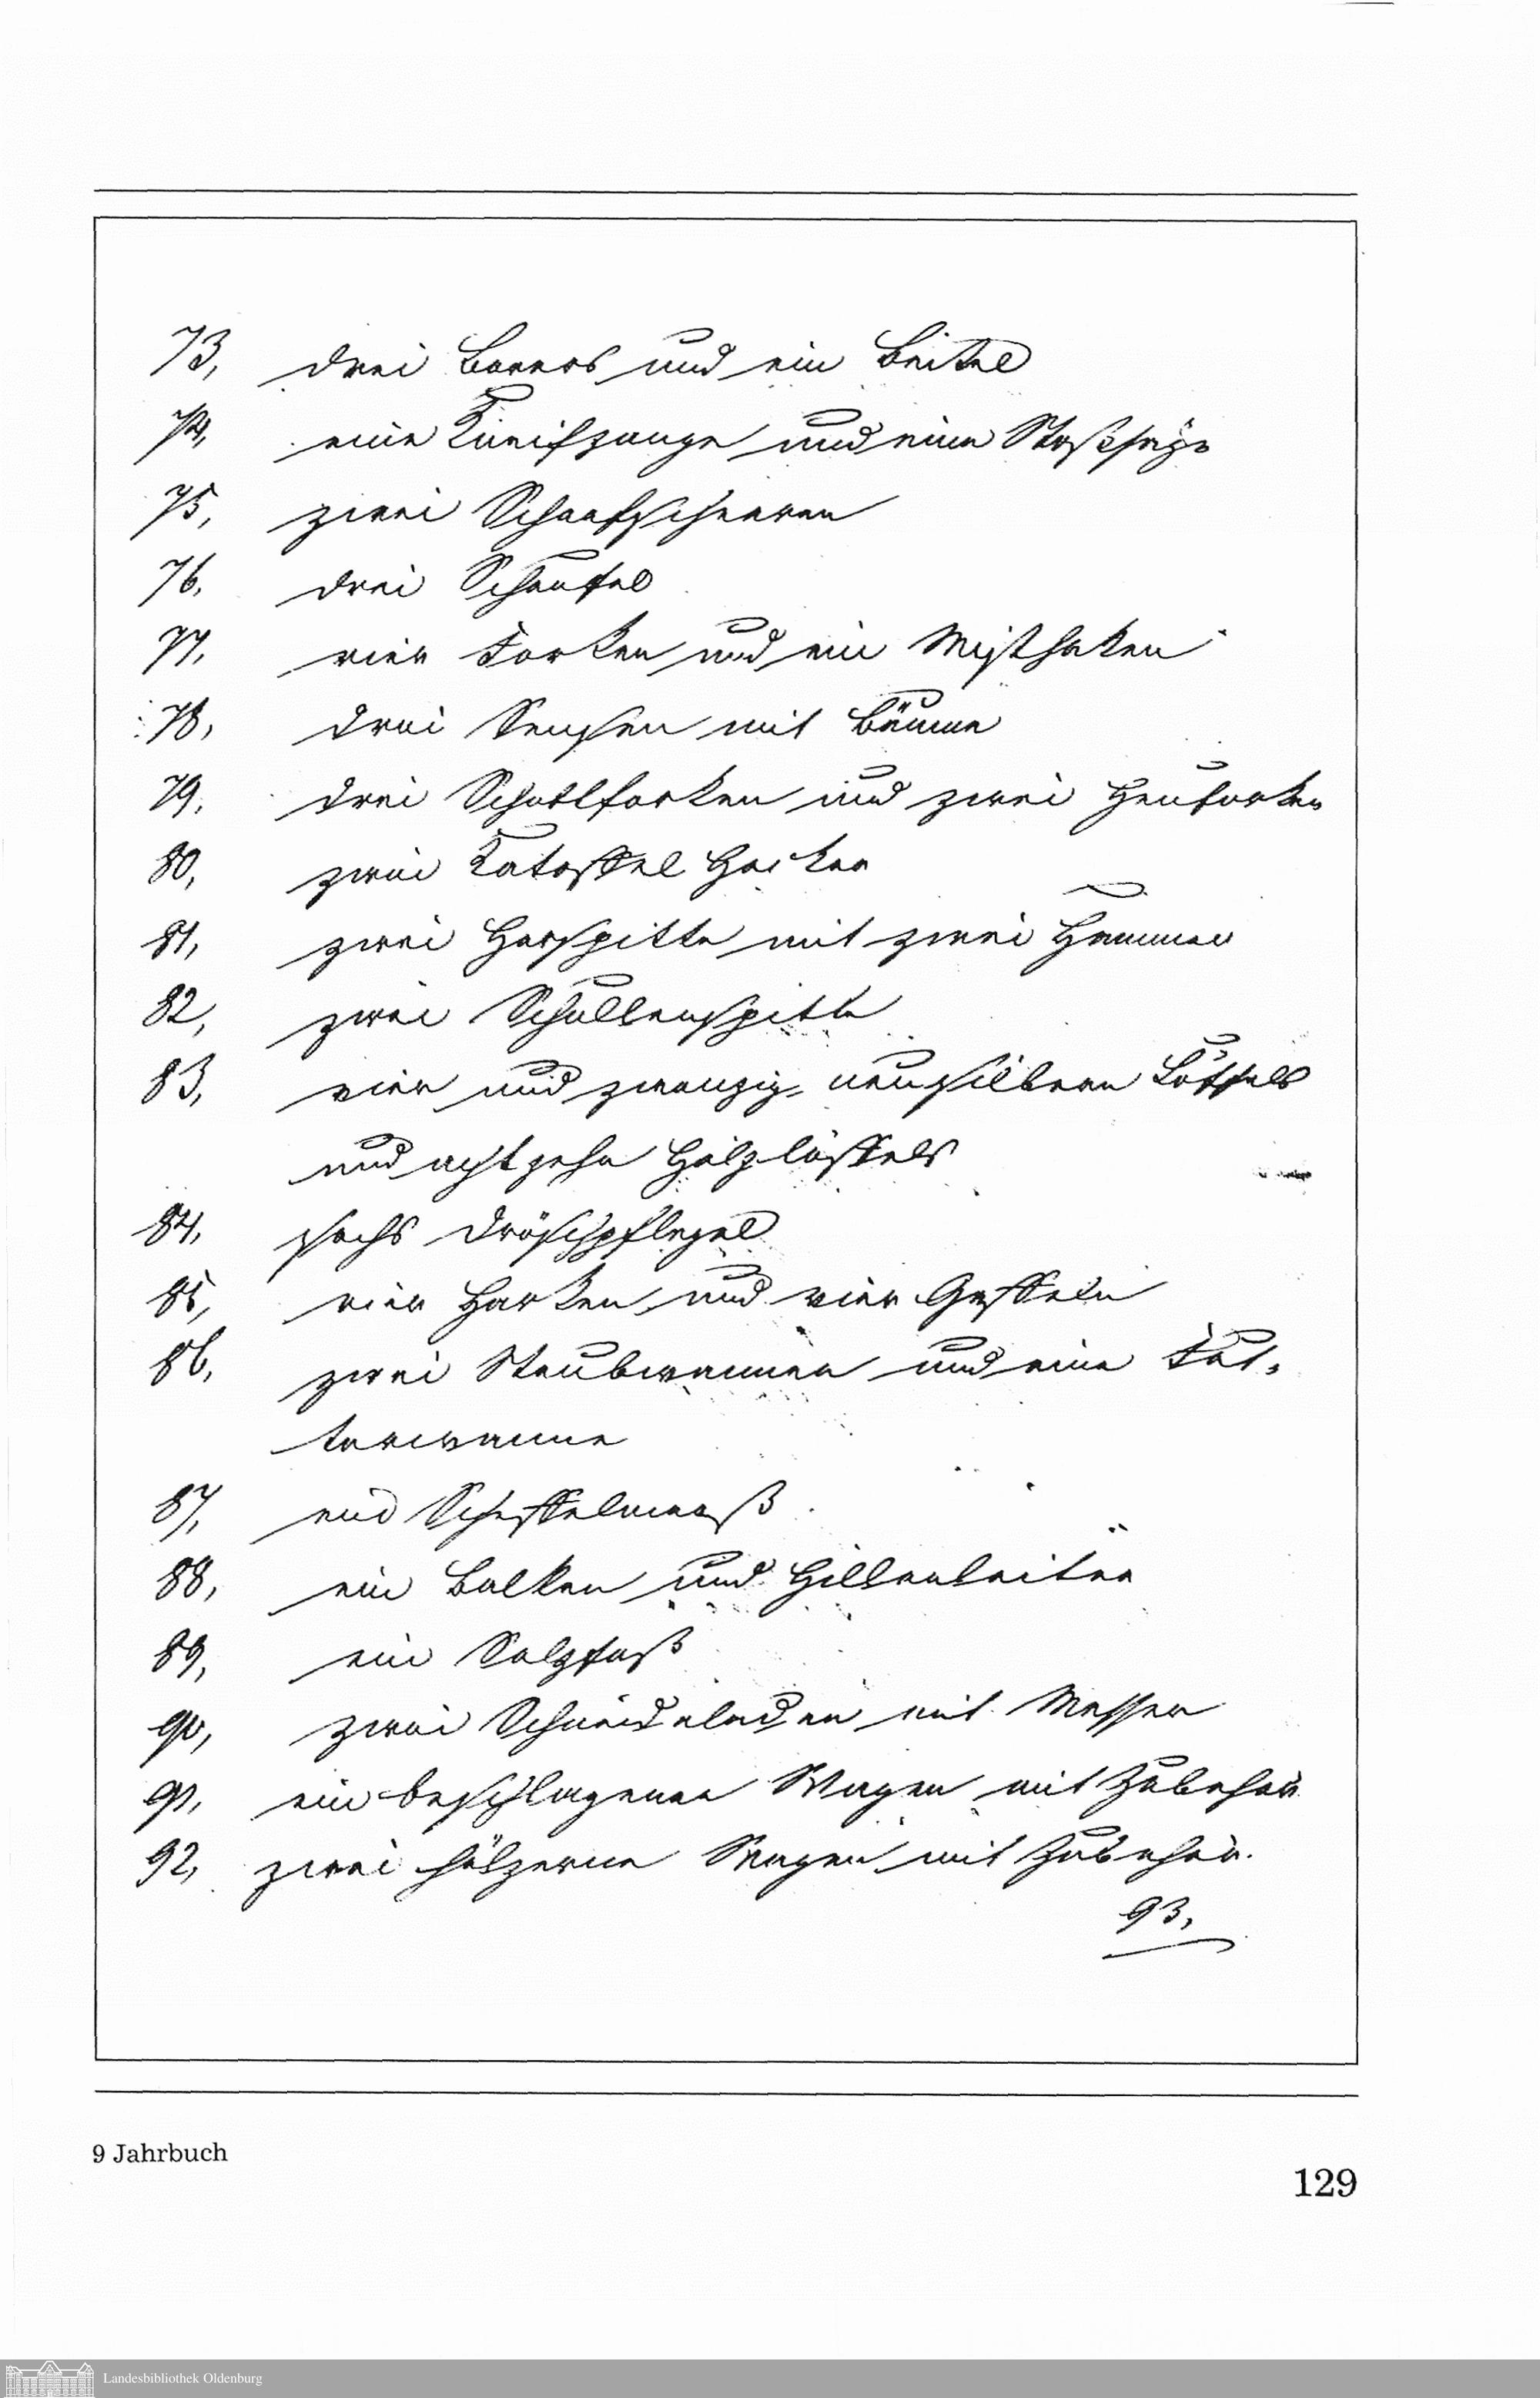 73, drei Borers und ein Beitel
74, eine Kneifzange und eine Stoßsäge
75, zwei Schaafscheeren
76, drei Schaufel
77, vier Forken und ein Misthaken
78, drei Sensen mit Bäume
79, drei Schottforken und zwei Heuforken
80, zwei Katoffel Hacken
81, zwei Harspitte mit zwei Hammer
82, zwei Schullenspitte
83, vier und zwanzig neusilbern Löffels
und achtzehn Holzlöffels
84, sechs Dröschpflegel
85, vier Harken und vier Gaffeln
86, zwei Staubwannen und eine Fut-
terwanne
87, ein Scheffelmaaß
88, ein Balken und Hillenleiter
89, ein Salzfaß
90, zwei Schneideladen mit Messer
91, ein beschlagenen Wagen mit Zubehör
92, zwei hölzerne Wagen mit Zubehör.
93,
9 Jahrbuch
129
Landesbibliothek Oldenburg